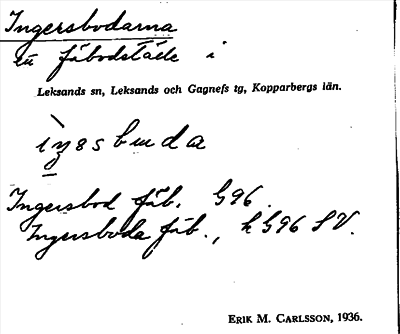 Ingersbodarna
en fäbodställe i
Leksands sn, Leksands och Gagnefs tg, Kopparbergs län.
Ingersbod fäb. G96.
Ingersboda fäb., k G96 SV.
ERIK M. CARLSSON, 1936.